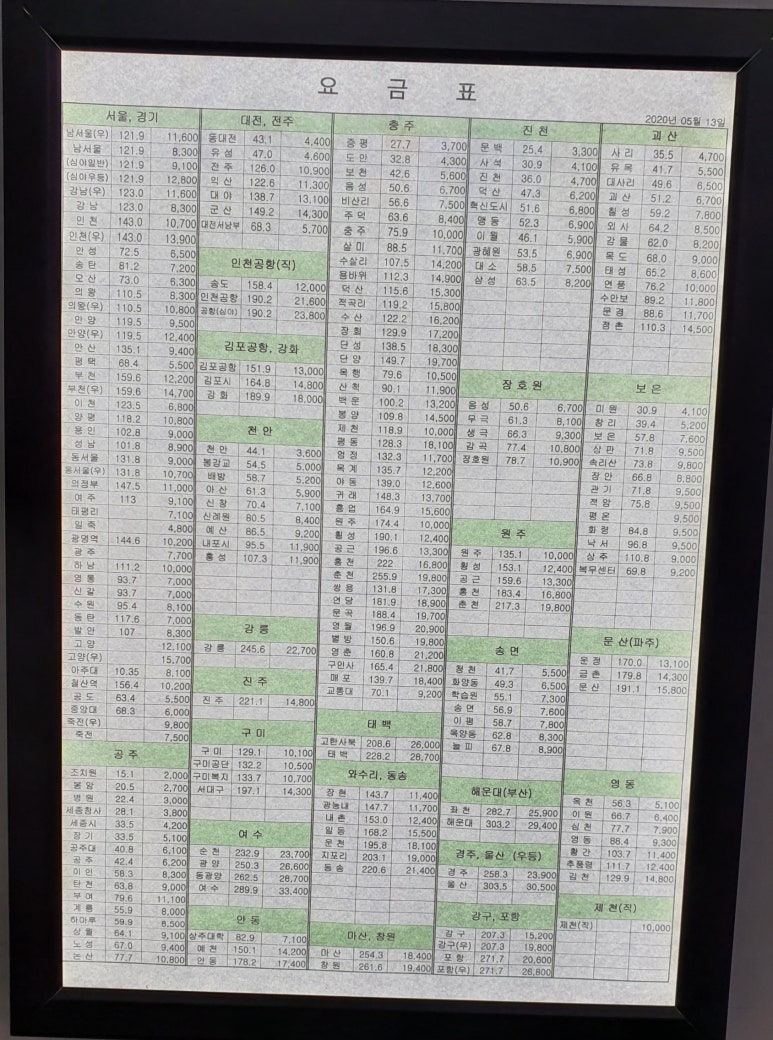 요 금 표
2020년 05월 13일
서울, 경기
남서울(우) 121.9 11,600
남서울 121.9 8,300
(심야일반) 121.9 9,100
(심야우등) 121.9 12,800
강남(우) 123.0 11,600
강 남 123.0 8,300
인 천 143.0 10,700
인천(우) 143.0 13,900
안 성 72.5 6,500
송 탄 81.2 7,200
오 산 73.0 6,300
의 왕 110.5 8,300
의왕(우) 110.5 10,800
안 양 119.5 9,500
안양(우) 119.5 12,400
안 산 135.1 9,400
평 택 68.4 5,500
부 천 159.6 12,200
부천(우) 159.6 14,700
이 천 123.5 6,800
양 평 118.2 10,800
용 인 102.8 9,000
성 남 101.8 8,900
동서울 131.8 9,000
동서울(우) 131.8 10,700
의정부 147.5 11,000
여 주 113 9,100
태평리 7,100
일 죽 4,800
광명역 144.6 10,200
광 주 7,700
하 남 111.2 10,000
영 통 93.7 7,000
신 갈 93.7 7,000
수 원 95.4 8,100
동 탄 117.6 7,000
발 안 107 8,300
고 양 12,100
고양(우) 15,700
아주대 10.35 8,100
철산역 156.4 10,200
공 도 63.4 5,500
중앙대 68.3 6,000
죽전(우) 9,800
죽전 7,500
공 주
조치원 15.1 2,000
봉 암 20.5 2,700
병 원 22.4 3,000
세종청사 28.1 3,800
세종시 33.5 4,200
장 기 33.5 5,100
공주대 40.8 6,100
공 주 42.4 6,200
이 인 58.3 8,300
탄 천 63.8 9,000
부 여 79.6 11,100
계 룡 55.9 8,000
하마루 59.9 8,500
상 월 64.1 9,100
노 성 67.0 9,400
논 산 77.7 10,800
대전, 전주
동대전 43.1 4,400
유 성 47.0 4,600
전 주 126.0 10,900
익 산 122.6 11,300
대 야 138.7 13,100
군 산 149.2 14,300
대전서남부 68.3 5,700
인천공항(직)
송도 158.4 12,000
인천공항 190.2 21,600
공항(심야) 190.2 23,800
김포공항, 강화
김포공항 151.9 13,000
김포시 164.8 14,800
강 화 189.9 18,000
천 안
천 안 44.1 3,600
봉강교 54.5 5,000
배방 58.7 5,200
아 산 61.3 5,900
신 창 70.4 7,100
신례원 80.5 8,400
예 산 86.5 9,200
내포시 95.5 11,900
홍 성 107.3 11,900
강 릉
강 릉 245.6 22,700
진 주
진 주 221.1 14,800
구 미
구 미 129.1 10,100
구미공단 132.2 10,500
구미복지 133.7 10,700
서대구 197.1 14,300
여 수
순 천 232.9 23,700
광 양 250.3 26,600
동광양 262.5 28,700
여 수 289.9 33,400
안 동
상주대학 82.9 7,100
예 천 150.1 14,200
안 동 178.2 17,400
충 주
증 평 27.7 3,700
도 안 32.8 4,300
보 천 42.6 5,600
음 성 50.6 6,700
비산리 56.6 7,500
주 덕 63.6 8,400
충 주 75.9 10,000
살 미 88.5 11,700
수살리 107.5 14,200
용바위 112.3 14,900
덕 산 115.6 15,300
적곡리 119.2 15,800
수 산 122.2 16,200
장 회 129.9 17,200
단 성 138.5 18,300
단 양 149.7 19,700
목 행 79.6 10,500
산 척 90.1 11,900
백 운 100.2 13,200
봉 양 109.8 14,500
제 천 118.9 10,000
평 동 128.3 18,100
엄 정 132.3 11,700
목 계 135.7 12,200
야 동 139.0 12,600
귀 래 148.3 13,700
흥 업 164.9 15,600
원 주 174.4 10,000
횡 성 190.1 12,400
공 근 196.6 13,300
홍 천 222 16,800
춘 천 255.9 19,800
쌍 용 131.8 17,300
연 당 181.9 18,900
문 곡 188.4 19,700
영 월 196.9 20,900
별 방 150.6 19,800
영 춘 160.8 21,200
구인사 165.4 21,800
매 포 139.7 18,400
교통대 70.1 9,200
태 백
고한사북 208.6 26,000
태 백 228.2 28,700
와수리, 동송
장 현 143.7 11,400
광능내 147.7 11,700
내 촌 153.0 12,400
일 동 168.2 15,500
운 천 195.8 18,100
지포리 203.1 19,000
동 송 220.6 21,400
마산, 창원
마 산 254.3 18,400
창 원 261.6 19,400
진 천
문 백 25.4 3,300
사 석 30.9 4,100
진 천 36.0 4,700
덕 산 47.3 6,200
혁신도시 51.6 6,800
맹 동 52.3 6,900
이 월 46.1 5,900
광혜원 53.5 6,900
대 소 58.5 7,500
삼 성 63.5 8,200
장 호 원
음 성 50.6 6,700
무 극 61.3 8,100
생 극 66.3 9,300
감 곡 77.4 10,800
장호원 78.7 10,900
원 주
원 주 135.1 10,000
횡 성 153.1 12,400
공 근 159.6 13,300
홍 천 183.4 16,800
춘 천 217.3 19,800
송 면
청 천 41.7 5,500
화양동 49.3 6,500
학습원 55.1 7,300
송 면 56.9 7,600
이 평 58.7 7,800
옥양동 62.8 8,300
늘 피 67.8 8,900
해운대(부산)
좌 천 282.7 25,900
해운대 303.2 29,400
경주, 울산 (우등)
경 주 258.3 23,900
울 산 303.5 30,500
강구, 포항
강 구 207.3 15,200
강구(우) 207.3 19,800
포 항 271.7 20,600
포항(우) 271.7 26,800
괴 산
사 리 35.5 4,700
유 목 41.7 5,500
대사리 49.6 6,500
괴 산 51.2 6,700
칠 성 59.2 7,800
외 사 64.2 8,500
강 물 62.0 8,200
목 도 68.0 9,000
태 성 65.2 8,600
연 풍 76.2 10,000
수안보 89.2 11,800
문 경 88.6 11,700
점 촌 110.3 14,500
보 은
미 원 30.9 4,100
창 리 39.4 5,200
보 은 57.8 7,600
상 판 71.8 9,500
속리산 73.8 9,800
장 안 66.8 8,800
관 기 71.8 9,500
적 암 75.8 9,500
평 온 9,500
화 령 84.8 9,500
낙 서 96.8 9,500
상 주 110.8 9,000
복무센터 69.8 9,200
문 산(파주)
운 정 170.0 13,100
금 촌 179.8 14,300
문 산 191.1 15,800
영 동
옥 천 56.3 5,100
이 원 66.7 6,400
심 천 77.7 7,900
영 동 88.4 9,300
황 간 103.7 11,400
추풍령 111.7 12,400
김 천 129.9 14,800
제 천(직)
제천(직) 10,000